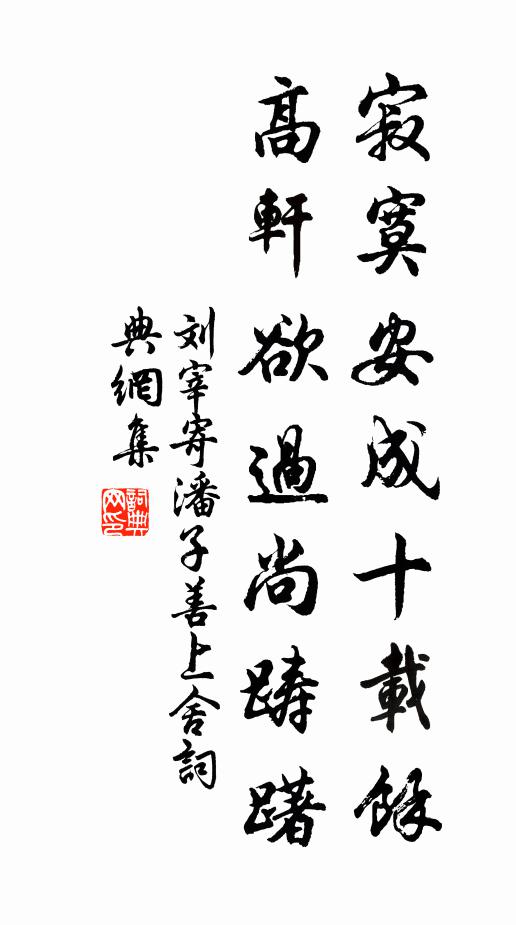 寂寞安成十載餘
高軒欲過尚踌躇
刘宰寄潘子善上舍詞
典網集
詞典网印